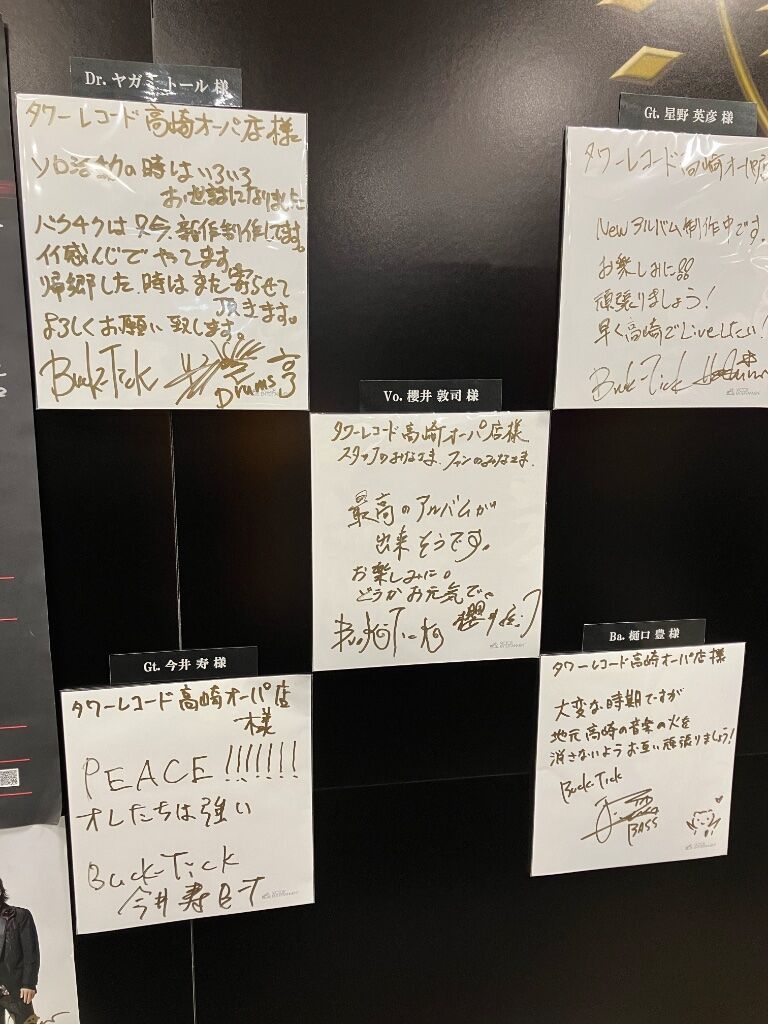 Dr. ヤガミ トール 様
タワーレコード高崎オーパ店様
ソロ活動の時はいろいろ
お世話になりました
バクチクは只今、新作制作してます。
イイ感んじでやてます
帰郷した時はまた寄らせて
頂きます。
よろしくお願い致します。
Buck-Tick
Drums
Gt. 星野 英彦 様
タワーレコード高崎オーパ店
Newアルバム制作中です。
お楽しみに!!
頑張りましょう!
早く高崎でLiveしたい!
Buck-Tick
Vo. 櫻井 敦司 様
タワーレコード高崎オーパ店様
スタッフのみなさま、ファンのみなさま、
最高のアルバムが
出来そうです。
お楽しみに。
どうかお元気で。
Buck-Tick 櫻井
Gt. 今井 寿 様
タワーレコード高崎オーパ店
様
PEACE!!!!!!!
オレたちは強い
Buck-Tick
今井寿 B-T
Ba. 樋口 豊 様
タワーレコード高崎オーパ店様
大変な時期ですが
地元高崎の音楽の火を
消さないようお互い頑張りましょう!
Buck-Tick
BASS